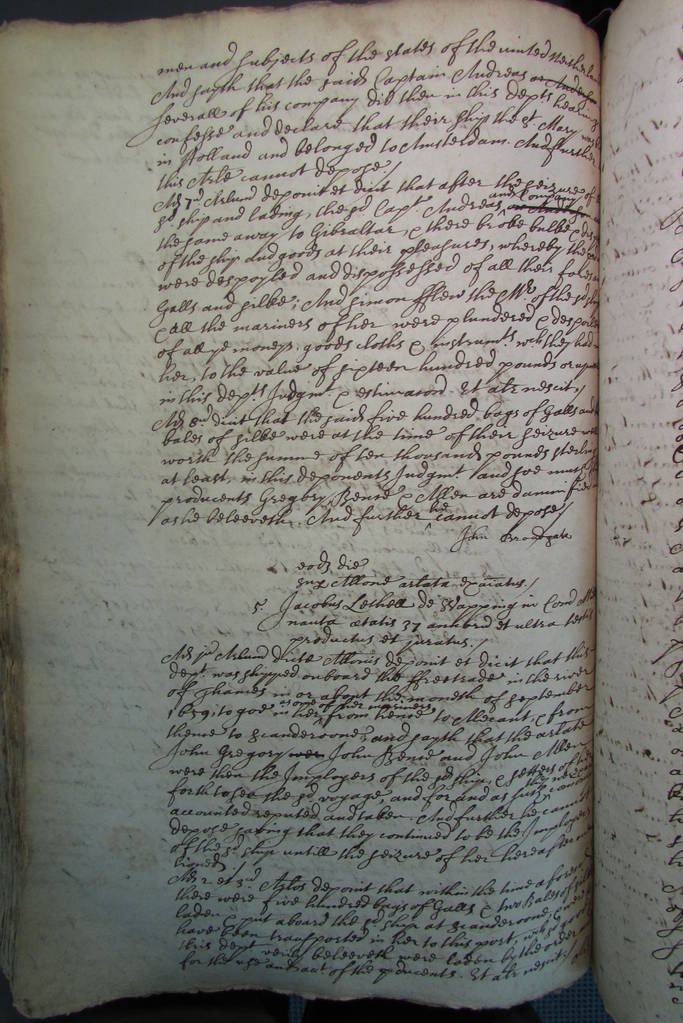 men and subjects of the states of the united Netherlands
And sayth that the said Captain Andreas or
severall of his company did then in this depts hearing
confesse and declare that their ship the St Mary was
in Holland and belonged to Amsterdam. And further
this Arle cannot depose /
Ad 7m Arlum deponit et dicit that after the seizure of the
sd ship and lading, the sd Capt. Andreas and Company
the same away to Gibraltar, & there broke bulke & dis
of the ship and goods at their pleasures, whereby the
were despoyled and dispossessed of all their
Galls and silke; And Simon fflew the Mr of the sd ship
& all the mariners of her were plundered & despoiled
of all ye moneys, goods cloths & instrumts wch they had in
her, to the value of sixteen hundred pounds or
in this depts Judgmt. & estimacion. Et alr nescit /
Ad 8m dicit that the said five hundred bags of Galls and
bales of silke were at the time of their seizure
worth the summe of ten thousand pounds sterling
at least, in this deponents Judgmt. and soe much the
producents Gregory, Bence & Allen are damnified
as he beleeveth. And further he cannot depose /
John Broadgate
eodm die
Allone arlata examinatus /
5. Jacobus Lethell de Wapping in Com
nauta ætatis 37 annorum et ultra testis
productus et juratus /
Ad primum Arlum dictæ Allonis deponit et dicit that this
dept. was shipped onboard the ffreetrade in the river
of Thames in or about the moneth of September
1659, to goe as one of her mariners in her from hence to Alecant, & from
thence to Scanderoone, and sayth that the arlate
John Gregory John Bence and John Allen
were then the Imployers of the sd ship, & setters of her
forth to sea the sd voyage, and for and as such commonly
accounted reputed and taken. And further he cannot
depose saving that they continued to be the Imployers
of the sd ship untill the seizure of her hereafter
tioned /
Ad 2 et 3um Arlos deponit that within the time aforesaid
there were five hundred bags of Galls & two Bales of silke
laden & put aboard the sd ship at Scanderoone, to
have been transported in her to this port, wch
this dept verily beleeveth were laden by the order
for the use and acct of the producents. Et alr nescit /